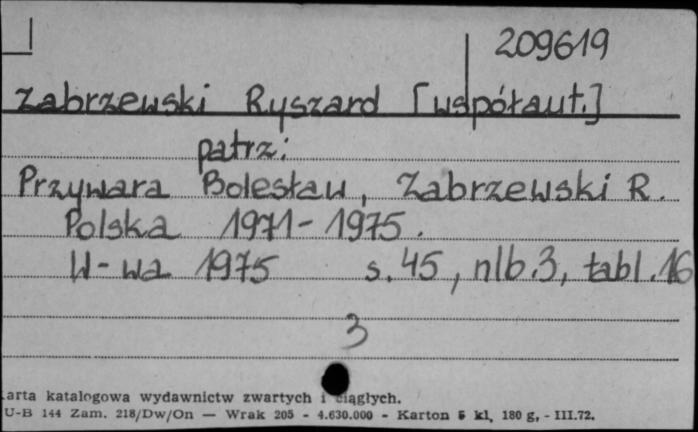 209619
Zabrzewski Ryszard [współaut.]
patrz:
Przywara Bolesław, Zabrzewski R.
Polska 1971-1975.
W-wa 1975 s. 45, nlb. 3, tabl. 16
3
Karta katalogowa wydawnictw zwartych i ciągłych.
U-B 144 Zam. 218/Dw/On — Wrak 205 - 4.630.000 - Karton 5 kl, 180 g, - III.72.